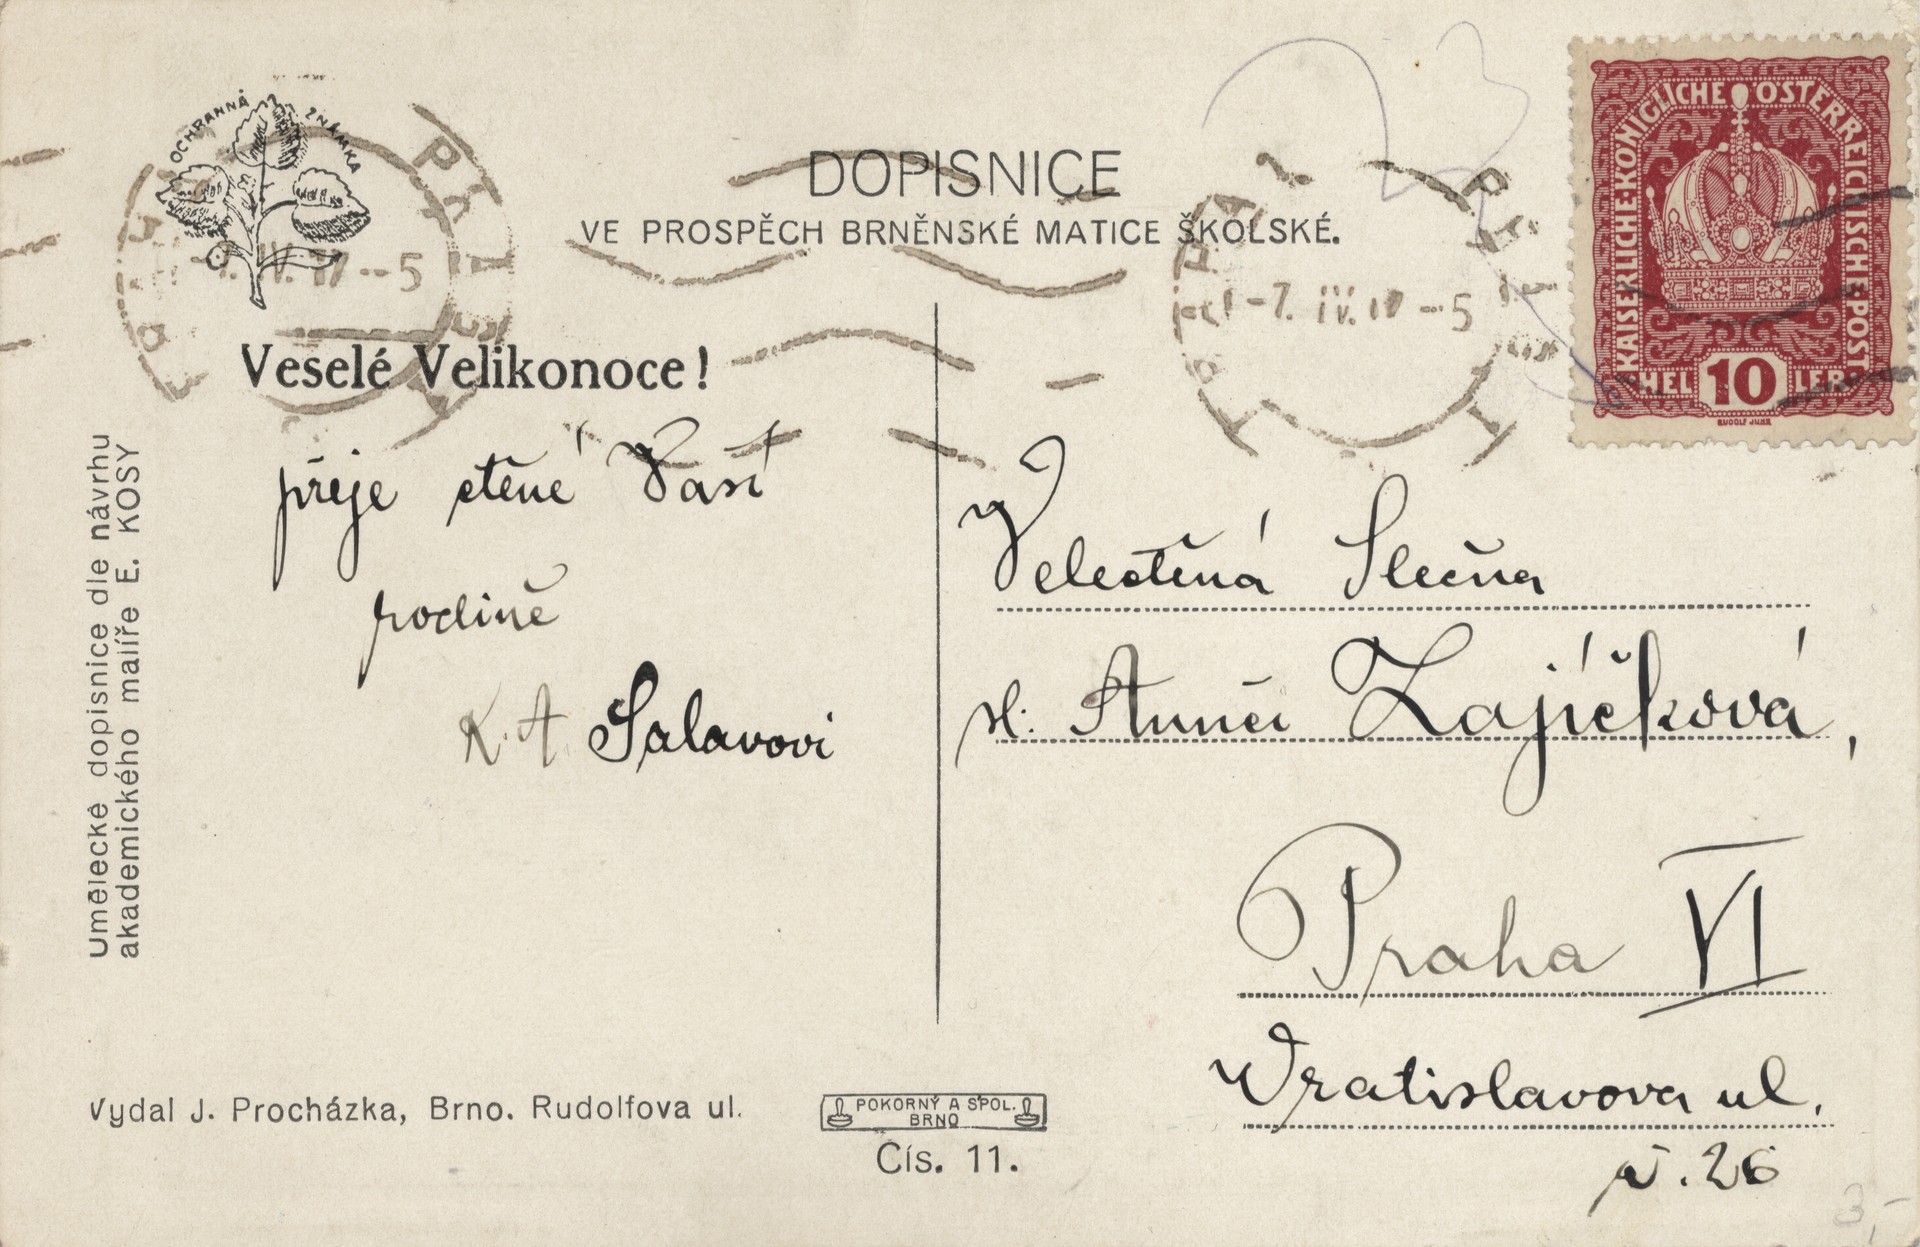 OCHRANNÁ ZNÁMKA
DOPISNICE
VE PROSPĚCH BRNĚNSKÉ MATICE ŠKOLSKÉ.
KAISERLICHE·KÖNIGLICHE ÖSTERREICHISCHE·POST
HELLER
10
RUDOLF JUNK
-7. IV. 17 --5
IV. 17 --5
Veselé Velikonoce!
přeje ctěné Vaší
rodině
K. A. Salavovi
Umělecké dopisnice dle návrhu
akademického malíře E. KOSY
Velectěná Slečna
sl. Annči Zajíčková,
Praha VI
Vratislavova ul.
č. 26
Vydal J. Procházka, Brno. Rudolfova ul.
POKORNÝ A SPOL.
BRNO
Čís. 11.
3,-